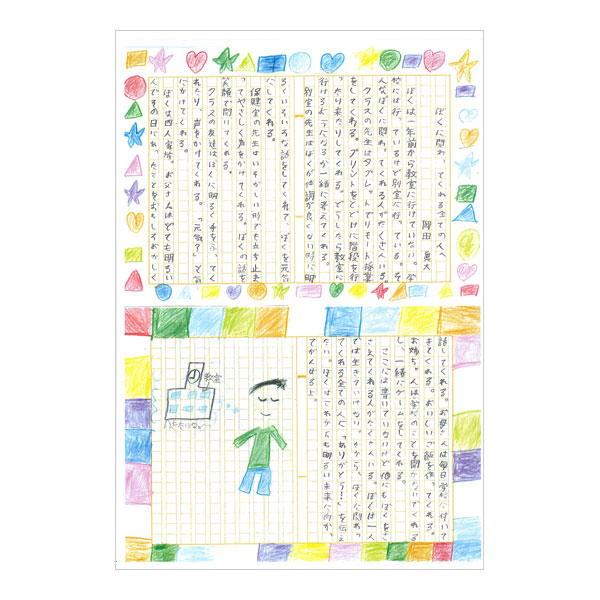 ぼくに関わってくれる全ての人へ
岡田　真大
ぼくは一年前から教室に行けていない。学
校には行っているけど別室に行っている。そ
んなぼくに関わってくれる人がたくさんいる。
クラスの先生はタブレットでリモート授業
をしてくれる。プリントをとどけに階段を行
ったり来たりしてくれる。どうしたら教室に
行けるようになるか一緒に考えてくれる。
別室の先生はぼくが体調が良くない時に明
るくいろいろな話をしてくれて、ぼくを元気
にしてくれる。
保健室の先生はいそがしい時でも立ち止ま
ってやさしく声をかけてくれる。ぼくの話を
笑顔で聞いてくれる。
クラスの友達はぼくに明るく手をふってく
れたり、声をかけてくれる。「元気？」と気
にかけてくれる。
ぼくは四人家族。お父さんはとても明るい
人でその日にあったことをおもしろおかしく
話してくれる。お母さんは毎日学校に付いて
きてくれる。おいしいご飯を作ってくれる。
お姉ちゃんは学校のことを聞かないでくれる
し、一緒にゲームをしてくれる。
ここには書いていないけど他にもぼくをさ
さえてくれる人がたくさんいる。ぼくは一人
では生きていけない。だから、ぼくに関わっ
てくれる全ての人に「ありがとう！」を伝え
たい。ぼくはこれからも明るい未来に向かっ
てがんばるよ。
教室